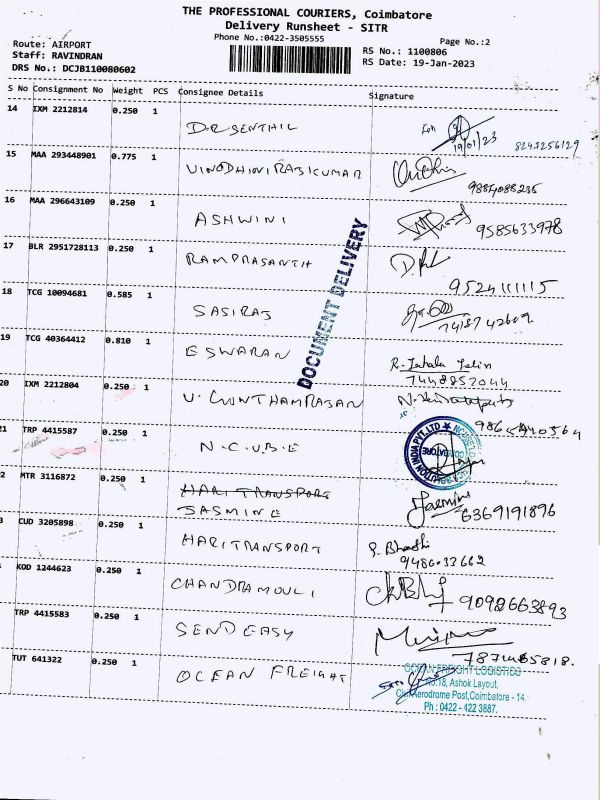 THE PROFESSIONAL COURIERS, Coimbatore
Delivery Runsheet - SITR
Phone No.:0422-3505555
Page No.:2
Route: AIRPORT
Staff: RAVINDRAN
DRS No.: DCJB110080602
RS No.: 1100806
RS Date: 19-Jan-2023
S No Consignment No Weight PCS Consignee Details Signature
14 IXM 2212814 0.250 1
DR SENTHIL 19/01/23 8243256129
15 MAA 293448901 0.775 1
VINODHINI RAJKUMAR
9884088235
16 MAA 296643109 0.250 1
ASHWINI 9585633978
17 BLR 2951728113 0.250 1
RAMPRASANTH
9524111115
18 TCG 10094681 0.585 1
SASIRAJ
19 TCG 40364412 0.810 1
ESWARAN
7448857044
20 IXM 2212804 0.250 1
21 TRP 4415587 0.250 1
N.C.U.B.E
2 MTR 3116872 0.250 1
HARI TRANSPORT
JASMINE Jasmine 6369191896
3 CUD 3205898 0.250 1
HARITRANSPORT
9486033662
KOD 1244623 0.250 1
CHANDRAMOULI 9092663893
TRP 4415583 0.250 1
SENDEASY
TUT 641322 0.250 1
OCEAN FREIGHT
DOCUMENT DELIVERY
OCEAN FREIGHT LOGISTICS
No.18, Ashok Layout,
Civil Aerodrome Post, Coimbatore - 14
Ph : 0422 - 422 3887.